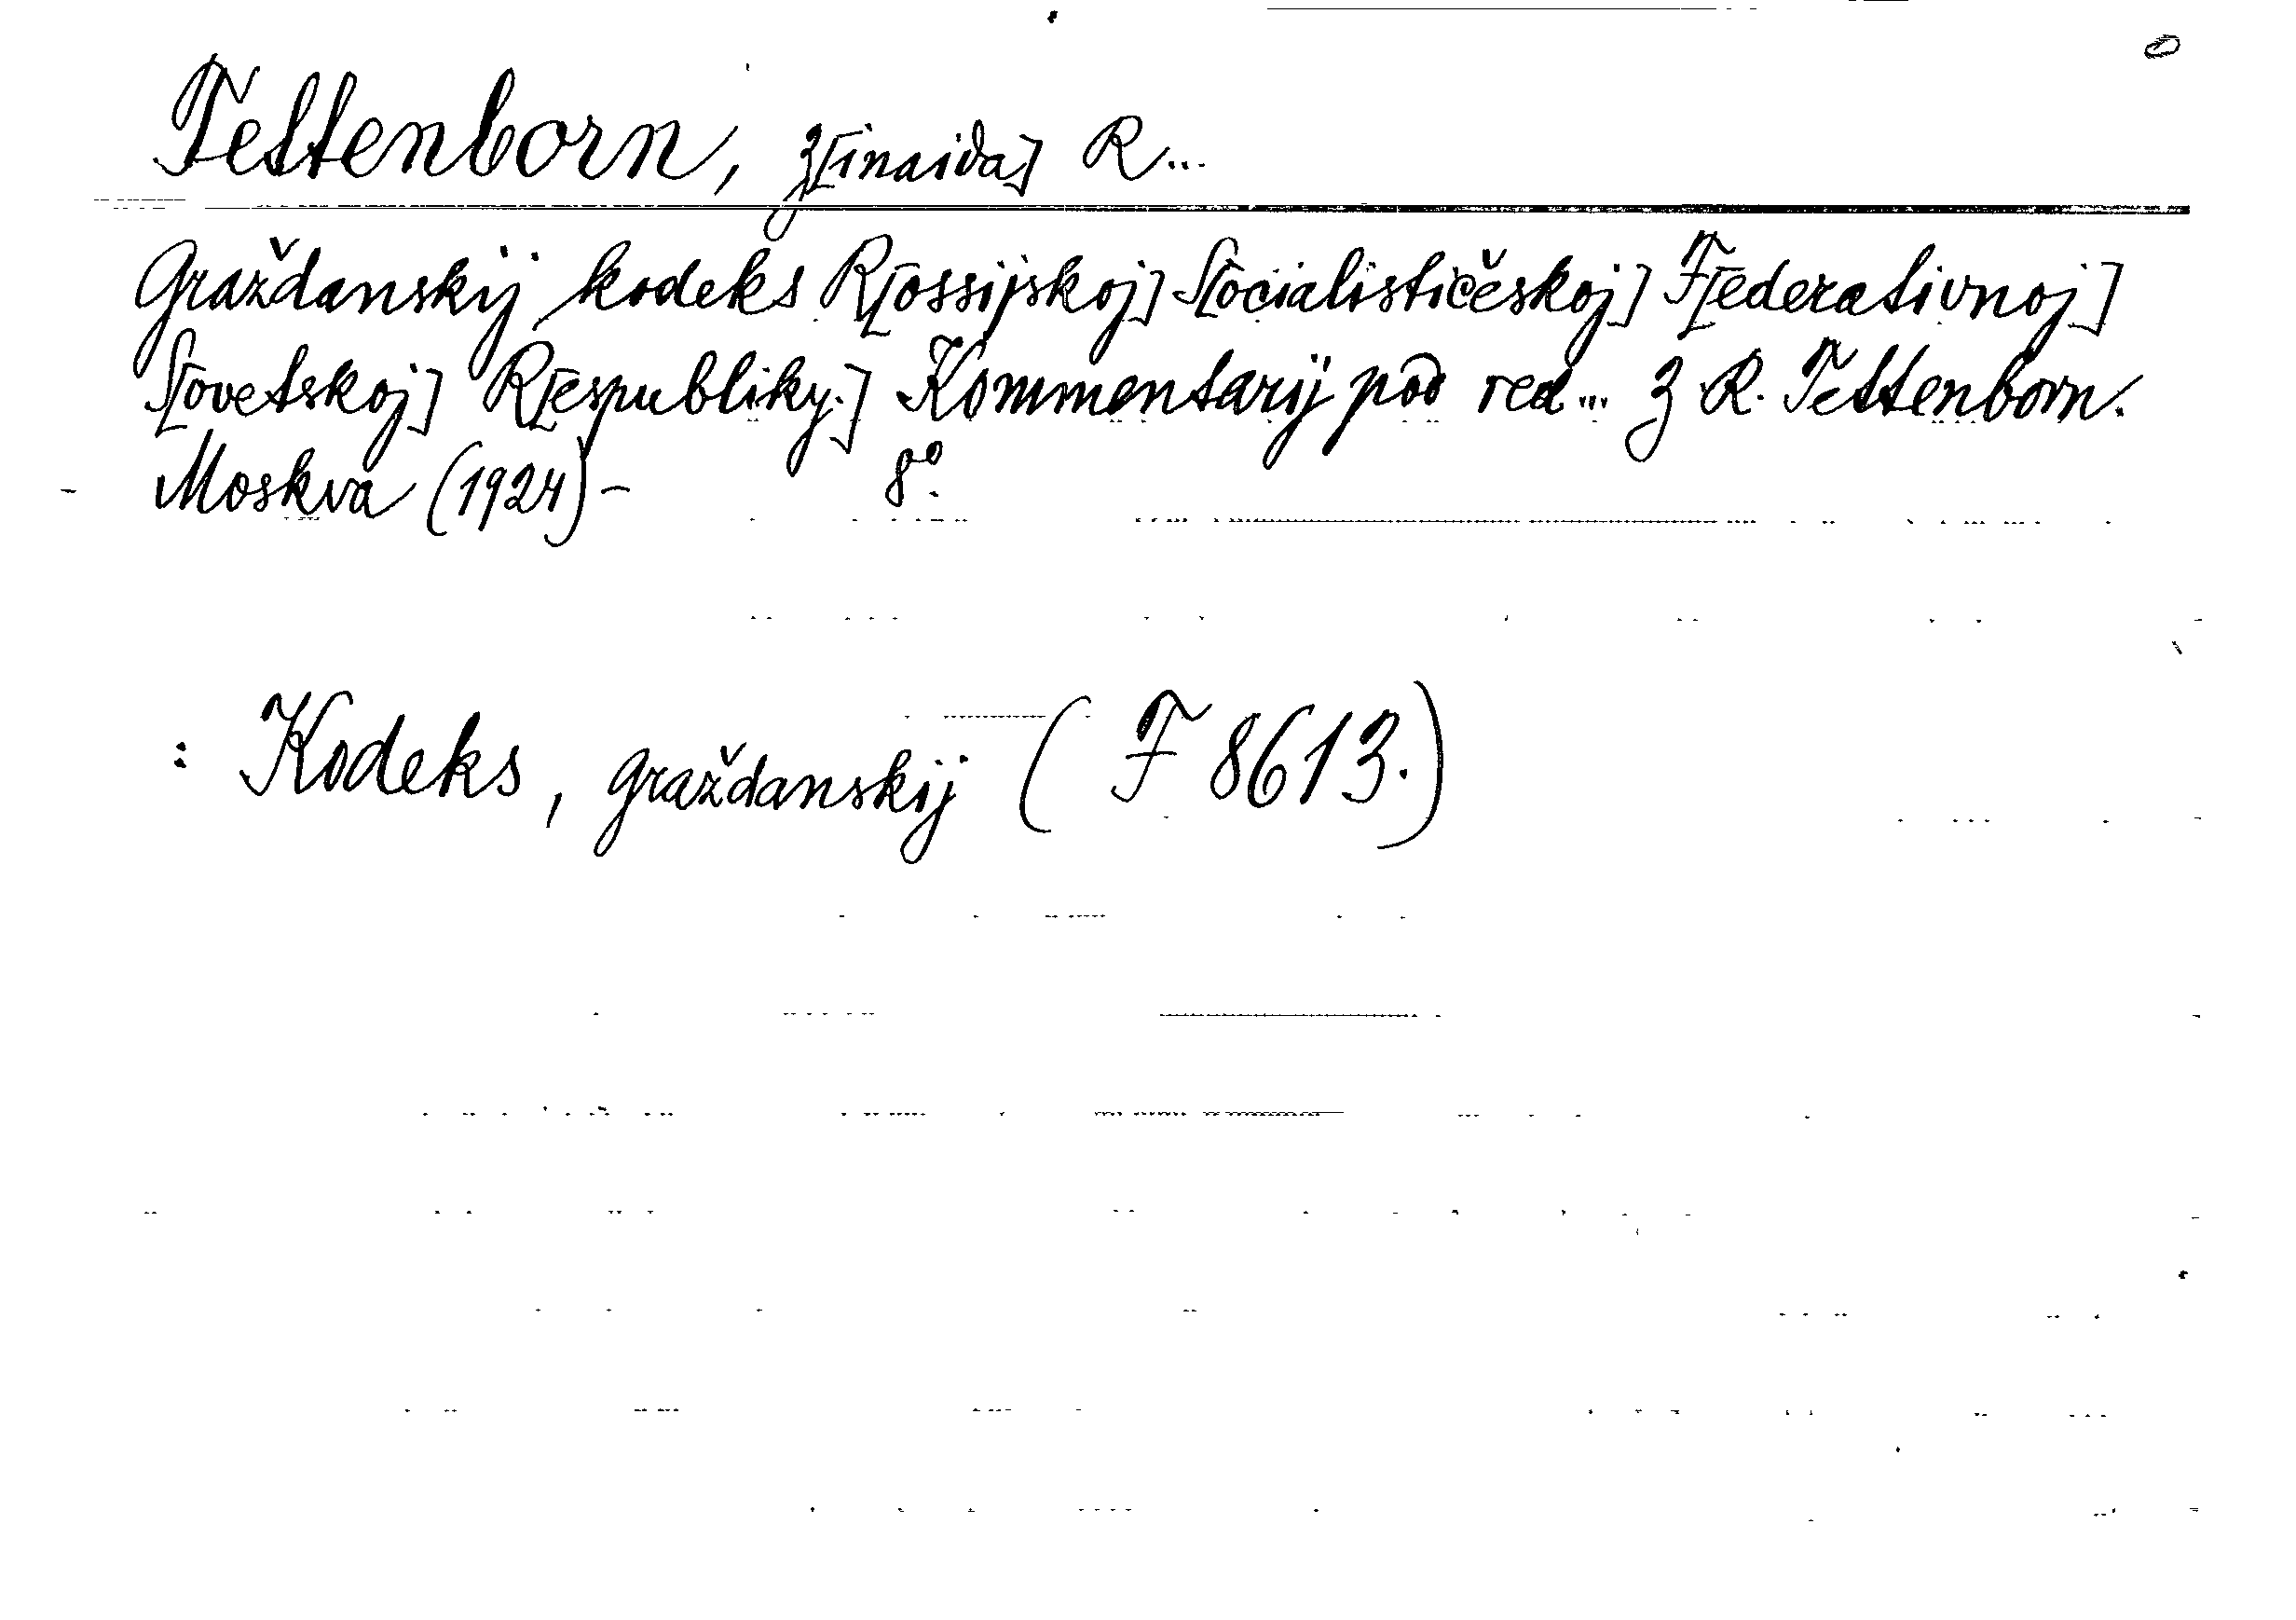 Tettenborn, Z[inaida] R...
Graždanskij kodeks R[ossijskoj] S[ocialističeskoj] F[ederativnoj]
S[ovetskoj] R[espubliky.] Kommentarij pod red... Z R. Tettenborn.
Moskva (1924)- 8°.
: Kodeks, graždanskij (F 8613.)